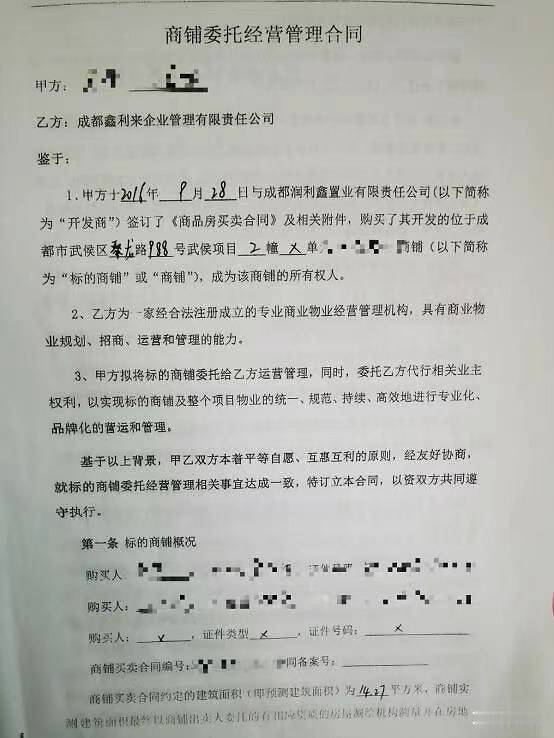 商铺委托经营管理合同
甲方：
乙方：成都鑫利来企业管理有限责任公司
鉴于：
1.甲方于2016年 9 月 28 日与成都润利鑫置业有限责任公司(以下简称
为“开发商”)签订了《商品房买卖合同》及相关附件，购买了其开发的位于成
都市武侯区聚龙路988号武侯项目 2 幢 X 单 商铺（以下简称
为“标的商铺”或“商铺”），成为该商铺的所有权人。
2、乙方为一家经合法注册成立的专业商业物业经营管理机构，具有商业物
业规划、招商、运营和管理的能力。
3、甲方拟将标的商铺委托给乙方运营管理，同时，委托乙方代行相关业主
权利，以实现标的商铺及整个项目物业的统一、规范、持续、高效地进行专业化、
品牌化的营运和管理。
基于以上背景，甲乙双方本着平等自愿、互惠互利的原则，经友好协商，
就标的商铺委托经营管理相关事宜达成一致，特订立本合同，以资双方共同遵
守执行。
第一条 标的商铺概况
购买人
购买人：
购买人： X ，证件类型 X ，证件号码： X
商铺买卖合同编号： 同备案号：
商铺买卖合同约定的建筑面积（即预测建筑面积）为 14.27 平方米，商铺实
测建筑面积最终以商铺出卖人委托的有相应资质的房屋测绘机构测量并在房地